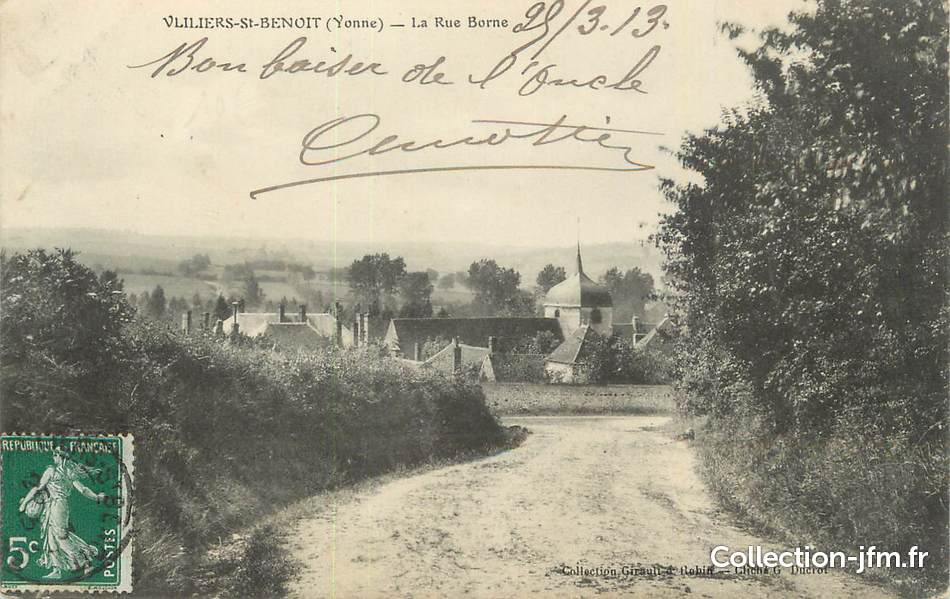 VLILIERS-St-BENOIT (Yonne) — La Rue Borne
28/3.13.
Bon baiser de l'Oncle
RÉPUBLIQUE FRANÇAISE
POSTES
5c
Collection Girault & Robin — Cliché G Ducrot
Collection-jfm.fr